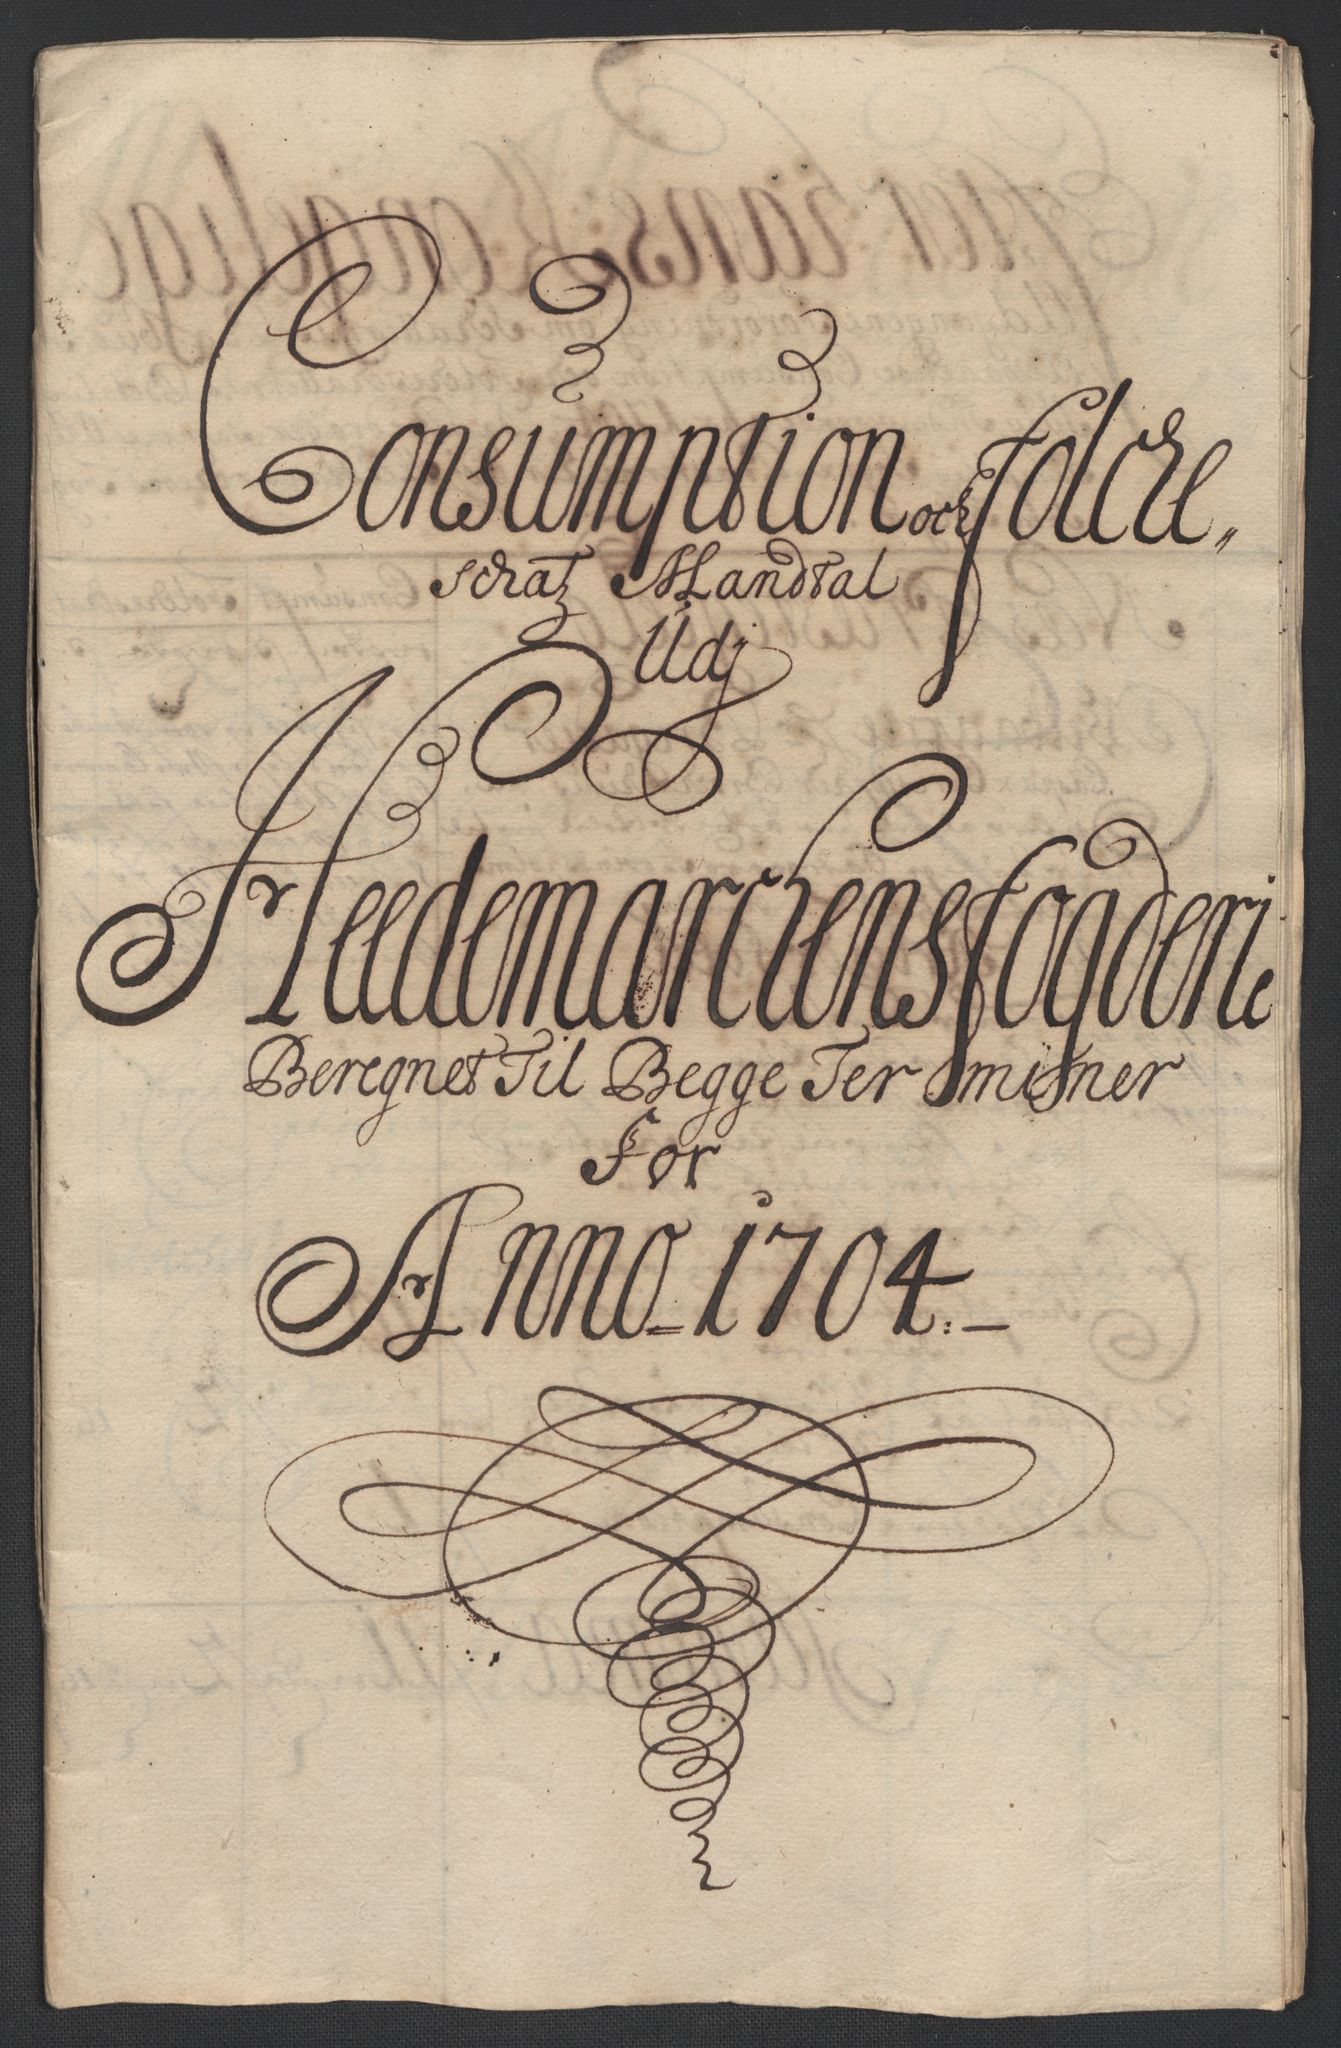 Consumption och folche„
schatz Mandtal
Udj
Heedemarchens fogderie
Beregnet Til Begge Terminer
For
Anno = 1704. : —